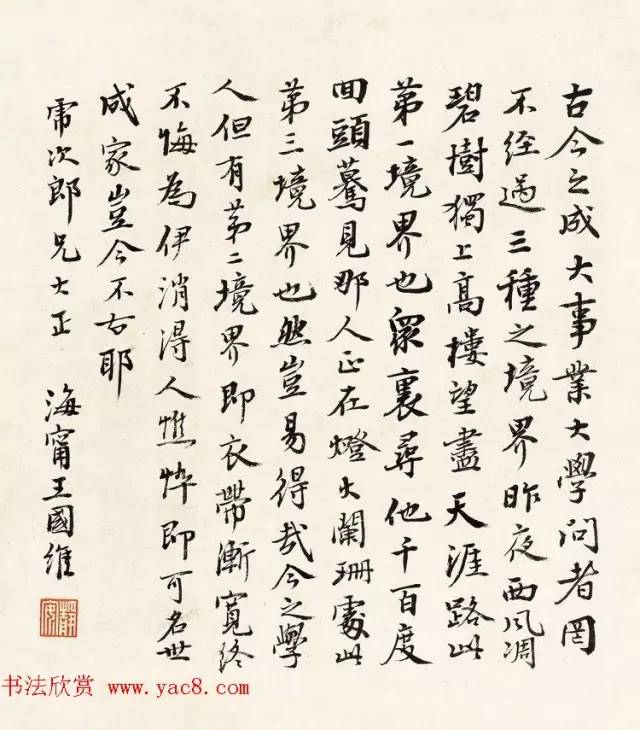 古今之成大事業大學問者罔
不經過三種之境界昨夜西風凋
碧樹獨上高樓望盡天涯路此
第一境界也眾裏尋他千百度
回頭驀見那人正在燈火闌珊處此
第三境界也然豈易得哉今之學
人但有第二境界即衣帶漸寬終
不悔為伊消得人憔悴即可名世
成家豈今不古耶
次郎兄大正
海甯王國維
书法欣赏 www.yac8.com